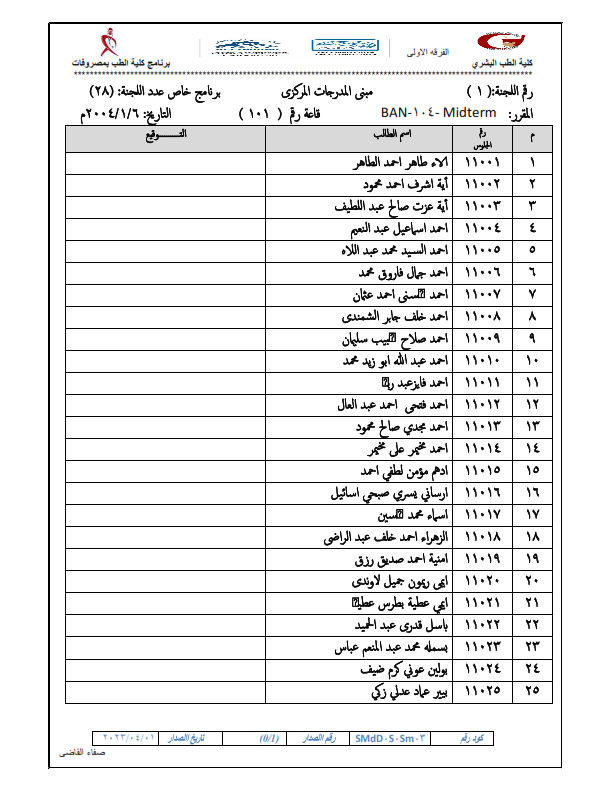 الفرقه الاولى
كلية الطب البشري
برنامج كلية الطب بمصروفات
رقم اللجنة: ( ١ ) مبنى المدرجات المركزى برنامج خاص عدد اللجنة: (٢٨)
المقرر: BAN-١٠٤- Midterm قاعة رقم ( ١٠١ ) التاريخ: ٢٠٠٤/١/٦م
م رقم الجلوس اسم الطالب التـــــوقيع
١ ١١٠٠١ الاء طاهر احمد الطاهر
٢ ١١٠٠٢ أية اشرف احمد محمود
٣ ١١٠٠٣ أية عزت صالح عبد اللطيف
٤ ١١٠٠٤ احمد اسماعيل عبد النعيم
٥ ١١٠٠٥ احمد السيد محمد عبد اللاه
٦ ١١٠٠٦ احمد جمال فاروق محمد
٧ ١١٠٠٧ احمد سنى احمد عثمان
٨ ١١٠٠٨ احمد خلف جابر الشمندى
٩ ١١٠٠٩ احمد صلاح بيب سليمان
١٠ ١١٠١٠ احمد عبد الله ابو زيد محمد
١١ ١١٠١١ احمد فايزعبد رب
١٢ ١١٠١٢ احمد فتحى احمد عبد العال
١٣ ١١٠١٣ احمد مجدي صالح محمود
١٤ ١١٠١٤ احمد مخيمر على مخيمر
١٥ ١١٠١٥ ادهم مؤمن لطفي احمد
١٦ ١١٠١٦ ارساني يسري صبحي اسائيل
١٧ ١١٠١٧ اسماء محمد سين
١٨ ١١٠١٨ الزهراء احمد خلف عبد الراضى
١٩ ١١٠١٩ امنية احمد صديق رزق
٢٠ ١١٠٢٠ ايمى ريمون جميل لاوندى
٢١ ١١٠٢١ ايمي عطية بطرس عطي
٢٢ ١١٠٢٢ باسل قدرى عبد الحميد
٢٣ ١١٠٢٣ بسمله محمد عبد المنعم عباس
٢٤ ١١٠٢٤ بولين عوني كرم ضيف
٢٥ ١١٠٢٥ بيير عماد عدلي زكي
كود رقم SMdD٠S٠Sm٠٣ رقم الصدار (0/1) تاريخ الصدار ٢٠٢٣/٠٤/٠١
صفاء القاضى